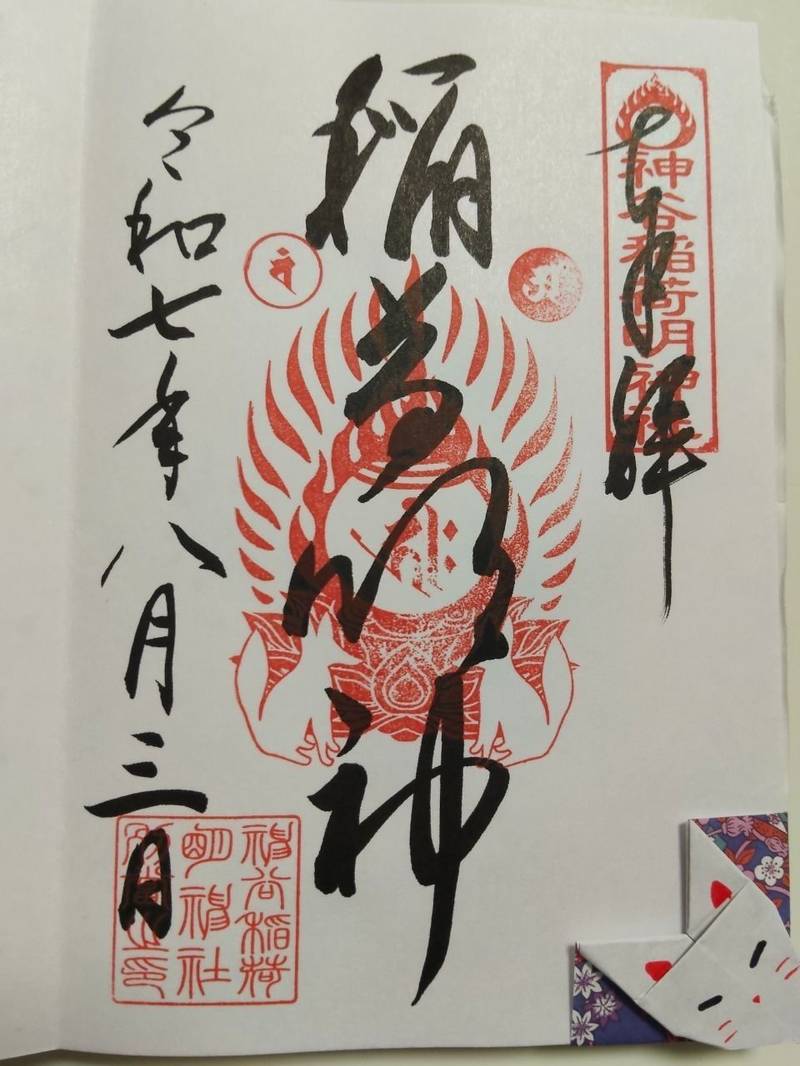 奉拝
神谷稲荷明神社
稲荷明神
令和七年八月三日
神谷稲荷
明神社